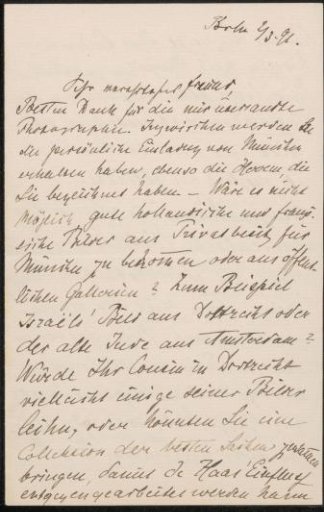 Berlin 2/3. 92.
Sehr verehrtester Freund,
Besten Dank für die mir übersandte
Photographie. Inzwischen werden Sie
die persönliche Einladung von München
erhalten haben, ebenso die Herren, die
Sie bezeichnet haben. – Wäre es nicht
möglich gute holländische und franzö-
sische Bilder aus Privatbesitz für
München zu bekommen oder aus öffent-
lichen Gallerien? Zum Beispiel
Israëls' Bild aus Dortrecht oder
der alte Jude aus Amsterdam?
Würde Ihr Cousin in Dortrecht
vielleicht einige seiner Bilder
leihen, oder könnten Sie eine
Collektion der besten Sachen zusammen
bringen, damit de Haas' Einfluss
entgegengearbeitet werden kann